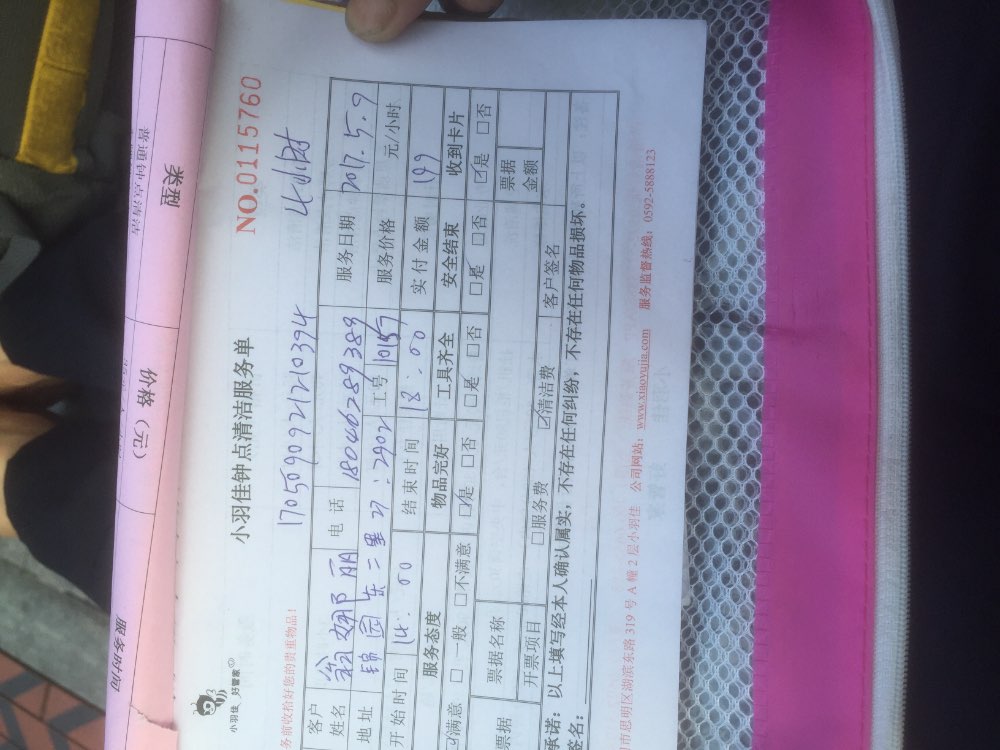 类型
普通钟点清洁
价格（元）
服务时间
小羽佳 好管家
小羽佳钟点清洁服务单
NO.0115760
务前收拾好您的贵重物品！
170509092121210394
4小时
客户姓名 翁娜丽 电话 18046289389 服务日期 2017.5.9
地址 锦园东二里27:2902 工号 10157 服务价格 元/小时
开始时间 14:00 结束时间 18:00 实付金额 199
服务态度 物品完好 工具齐全 安全结束 收到卡片
☑满意 □一般 □不满意 ☑是 □否 ☑是 □否 ☑是 □否 ☑是 □否
票据 票据名称 票据金额
开票项目 □服务费 ☑清洁费 客户签名
承诺：以上填写经本人确认属实，不存在任何纠纷，不存在任何物品损坏。
签名：
门市思明区湖滨东路 319 号 A 幢 2 层小羽佳 公司网站：www.xiaoyujia.com 服务监督热线：0592-5888123